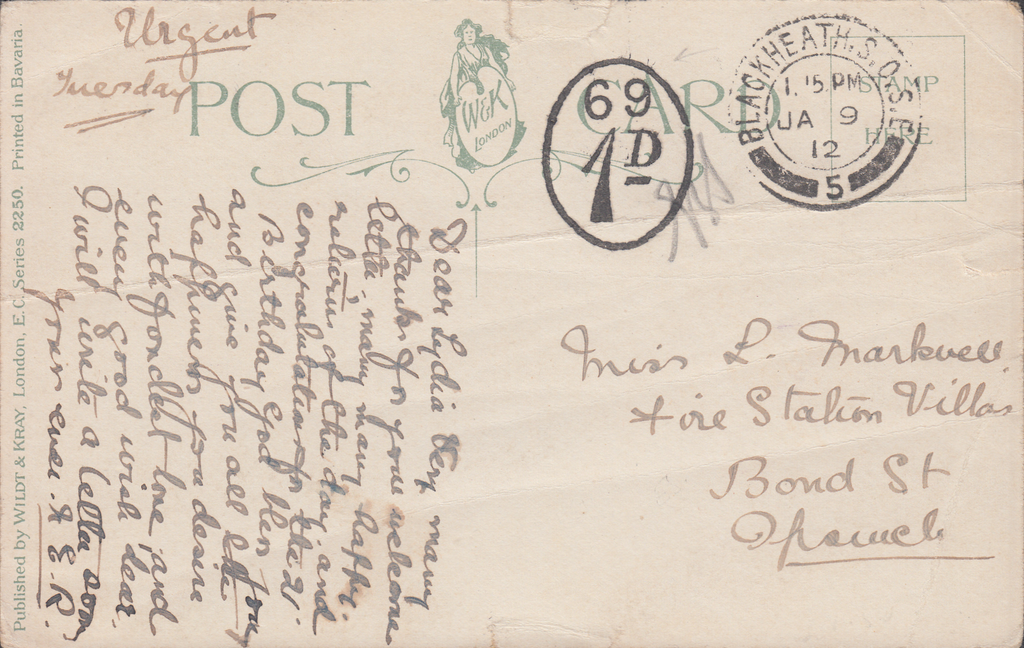 Urgent
Tuesday
POST CARD
W&K
LONDON
69
1D
BLACKHEATH.S.O.S.E
1.15 PM
JA 9
12
5
STAMP
HERE
Published by WILDT & KRAY, London, E.C. Series 2250. Printed in Bavaria.
Dear Lydia Very many
thanks for your welcome
letter, many many happy
returns of the day, and
congratulations for the 21
Birthday God bless
and give you all the joy
happiness you desire
with fondest love, and
every good wish dear
I will write a letter soon
yours ever. A E. R.
Miss L. Markwell
Fire Station Villas
Bond St
Ipswich